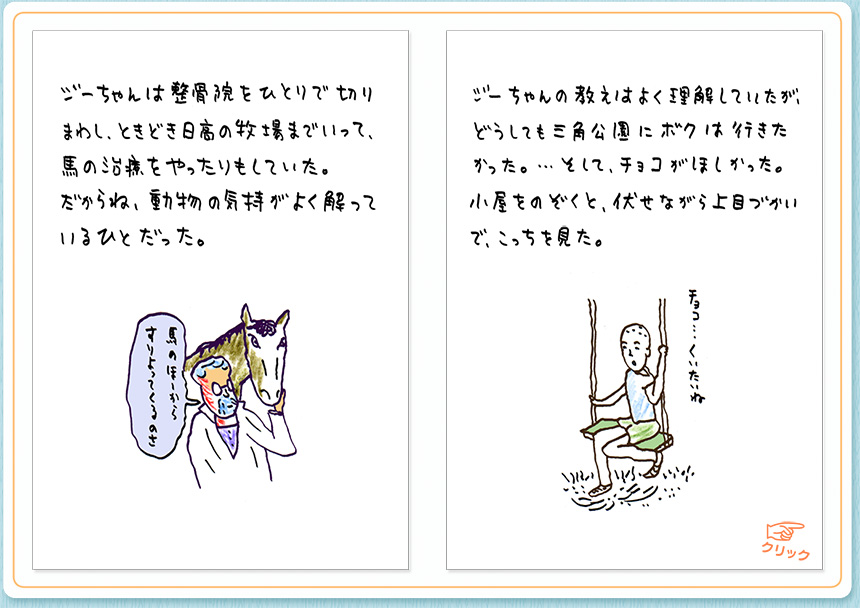 ジーちゃんは整骨院をひとりで切り
まわし、ときどき日高の牧場までいって、
馬の治療をやったりもしていた。
だからね、動物の気持がよく解って
いるひとだった。
馬のほーから
すりよってくるのさ
ジーちゃんの教えはよく理解していたが、
どうしても三角公園にボクは行きた
かった。…そして、チョコがほしかった。
小屋をのぞくと、伏せながら上目づかい
で、こっちを見た。
チョコ…くいたいね
クリック